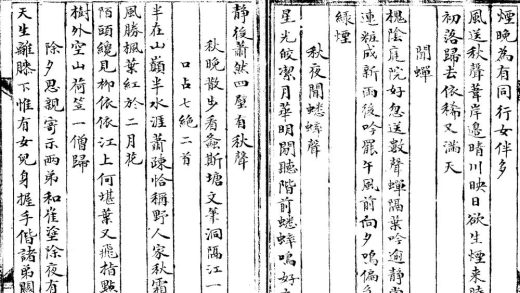 煙晚為有同行女伴多
風送秋聲葦岸邊晴川映日欲生煙來時
初落歸去依稀又滿天
聞蟬
槐陰庭院好忽送數聲蟬隔葉吟逾靜
連粧成新雨後吟罷午風前向夕嗚偏
綠堙
秋夜聞蟋蟀聲
星光皎潔月華明閒聽階前蟋蟀嗚好
靜後蕭然四壁有秋聲
秋晚散步看蠡斯塘文筆洞隔江一
口占七絕二首
半在山巔半水涯蕭疎恰稱野人家秋霜
風勝楓葉紅於二月花
陌頭纔見柳依依江上何堪葉又飛指點
樹外空山荷笠一僧歸
除夕思親寄示兩弟和崔塗除夜有
天生雖膝下惟有女兒身握手偕諸弟關